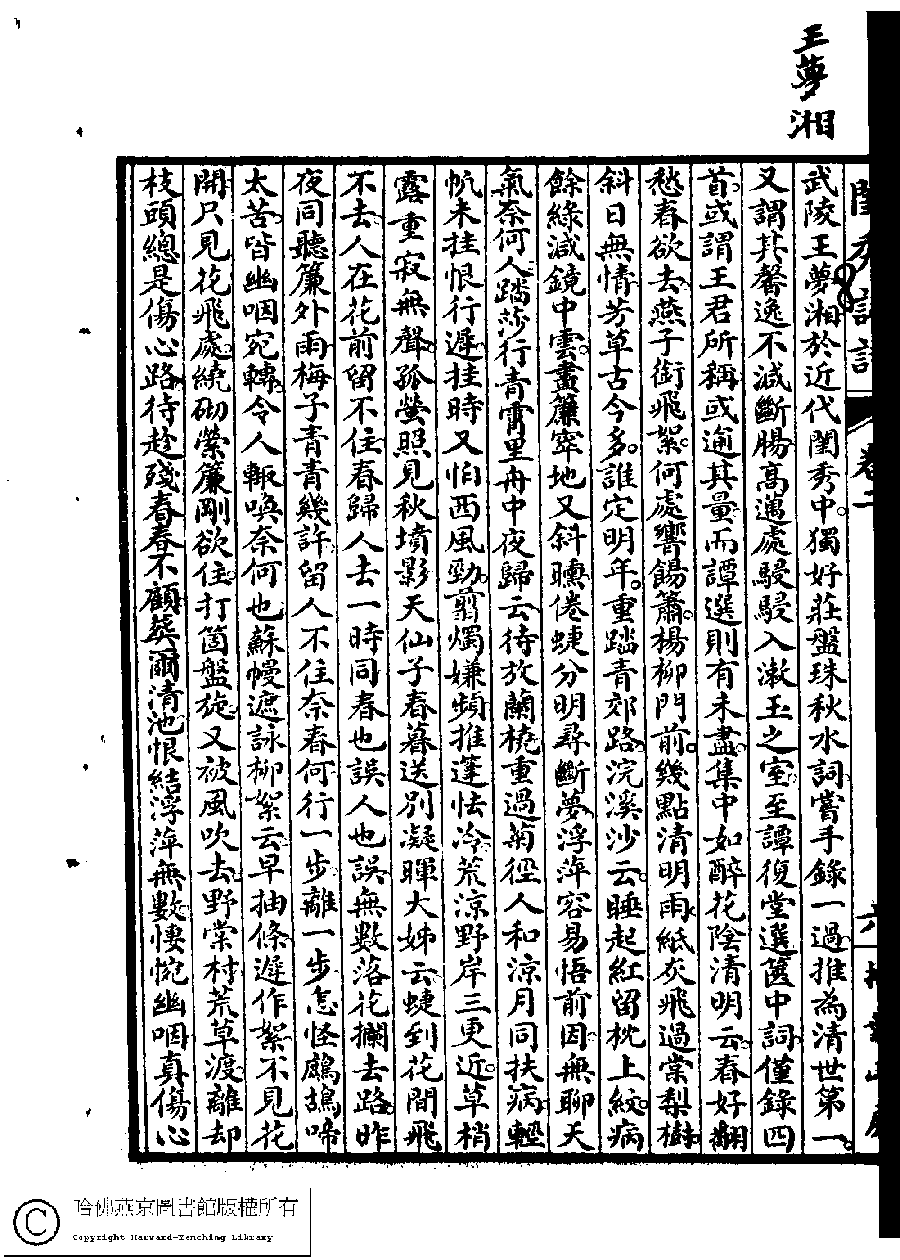 王夢湘
武陵王夢湘於近代閨秀中。獨好莊盤珠秋水詞。嘗手錄一過。推為清世第一。
又謂其馨逸不減斷腸。高邁處駸駸入漱玉之室。至譚復堂選篋中詞。僅錄四
首。或謂王君所稱。或逾其量。而譚選則有未盡。集中如醉花陰清明云。春好翻
愁春欲去。燕子銜飛絮。何處響餳簫。楊柳門前。幾點清明雨。紙灰飛過棠梨樹。
斜日無情。芳草古今多。誰定明年。重踏青郊路。浣溪沙云。睡起紅留枕上紋。病
餘綠減鏡中雲。畫簾窣地又斜曛。倦蜨分明尋斷夢。浮萍容易悟前因。無聊天
氣奈何人。踏莎行青霄里舟中夜歸云。待放蘭橈。重過菊徑。人和涼月同扶病。輕
帆未挂恨行遲。挂時又怕西風勁。翦燭嫌頻。推蓬怯冷。荒涼野岸三更近。草梢
露重寂無聲。孤螢照見秋墳影。天仙子春暮送別凝暉大姊云。蜨到花間飛
不去。人在花前留不住。春歸人去一時同。春也誤。人也誤。無數落花攔去路。昨
夜同聽簾外雨。梅子青青幾許。留人不住奈春何。行一步。離一步。怎怪鷓鴣啼
太苦。皆幽咽宛轉。令人輒喚奈何也。蘇幙遮詠柳絮云。早抽條。遲作絮。不見花
開。只見花飛處。繞砌縈簾剛欲住。打箇盤旋。又被風吹去。野棠村。荒草渡。離却
枝頭。總是傷心路。待趁殘春春不顧。葬爾清池。恨結浮萍無數。悽惋幽咽。真傷心
卷二
哈佛燕京圖書館版權所有
Copyright Harvard-Yenching Library